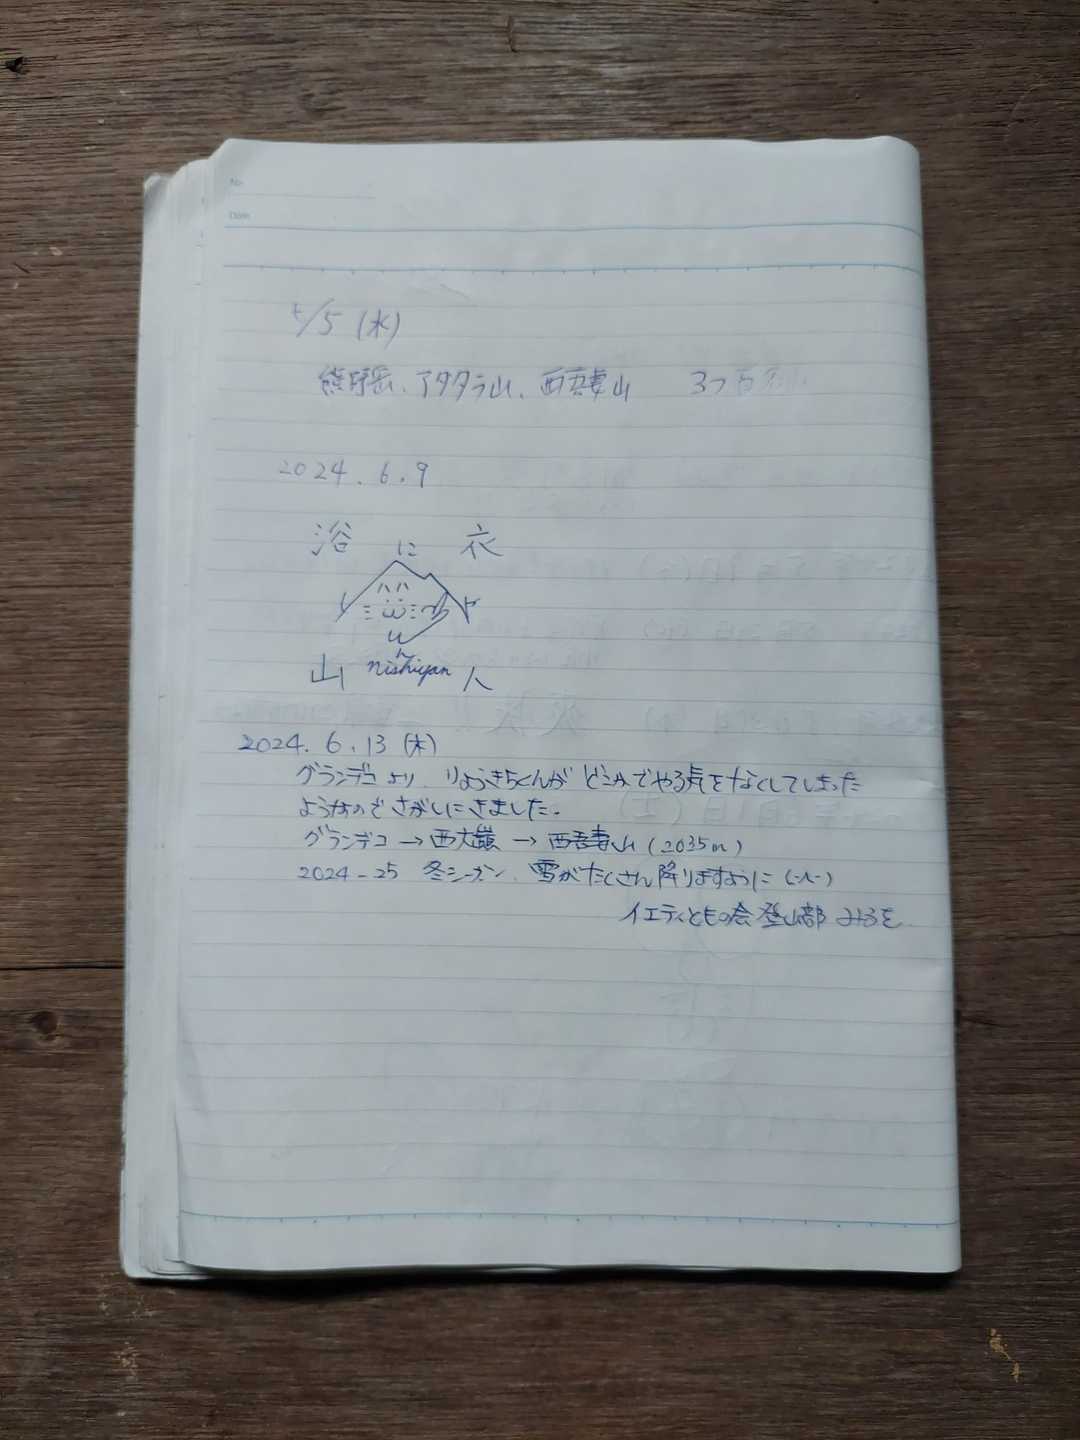 No.
Date
6/5 (水)
熊野岳、アダタラ山、西吾妻山 3つ百名山
2024.6.9
浴 に 衣
し や
ん
山 nishiyan 人
2024.6.13 (木)
グランデコより、りょうきちくんが どこかでやる気をなくしてしまった
ようなのでさがしにきました。
グランデコ→西大巓→西吾妻山(2035m)
2024-25 冬シーズン、雪がたくさん降りますように(-人-)
イエティともの会 登山部 みろを